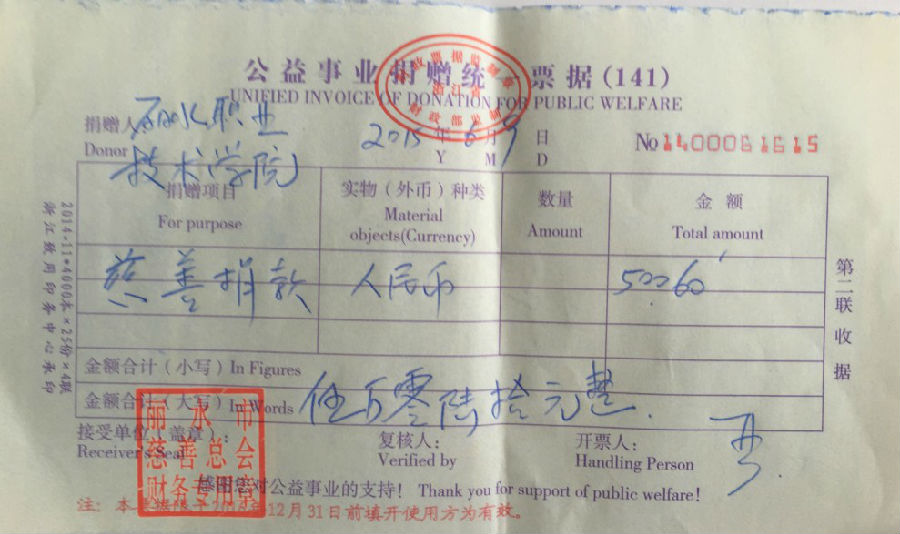 公益事业捐赠统一票据(141)
UNIFIED INVOICE OF DONATION FOR PUBLIC WELFARE
财政票据监制章
浙江省
财政部监制
捐赠人 丽水职业
Donor 技术学院
2015 年 6 月 9 日
Y M D
No 1400061615
捐赠项目 实物(外币)种类 数量 金额
For purpose Material objects(Currency) Amount Total amount
慈善捐款 人民币 50060
金额合计(小写) In Figures
金额合计(大写) In Words 伍万零陆拾元整.
接受单位(盖章): 复核人: 开票人:
Receiver's Seal Verified by Handling Person
丽水市
慈善总会
财务专用章
感谢您对公益事业的支持! Thank you for support of public welfare!
注: 本票据限于2016年12月31日前填开使用方为有效。
第二联收据
2014.11*4000本×25份×4联
浙江致用印务中心承印